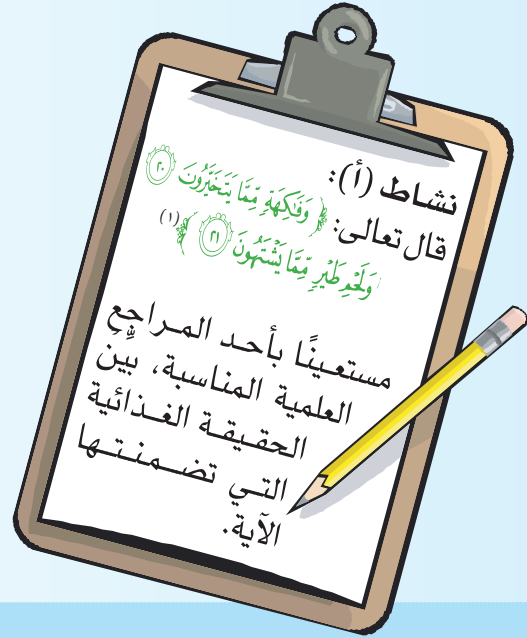 نشاط (أ):
قال تعالى: ﴿ وَفَٰكِهَةٍ مِّمَّا يَتَخَيَّرُونَ ۝٢٠
وَلَحْمِ طَيْرٍ مِّمَّا يَشْتَهُونَ ۝٢١ ﴾ (١)
مستعينًا بأحد المراجع
العلمية المناسبة، بيِّن
الحقيقة الغذائية
التي تضمنتها
الآية.